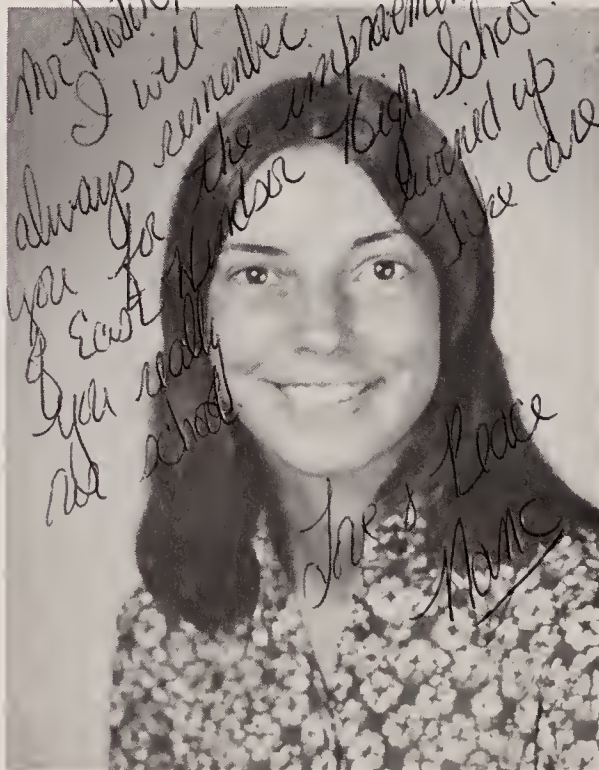 Mr
I will
always remember
you for the improvement
of East Windsor High School.
You really livened up
the school. Take care
Love & Peace
Nanc